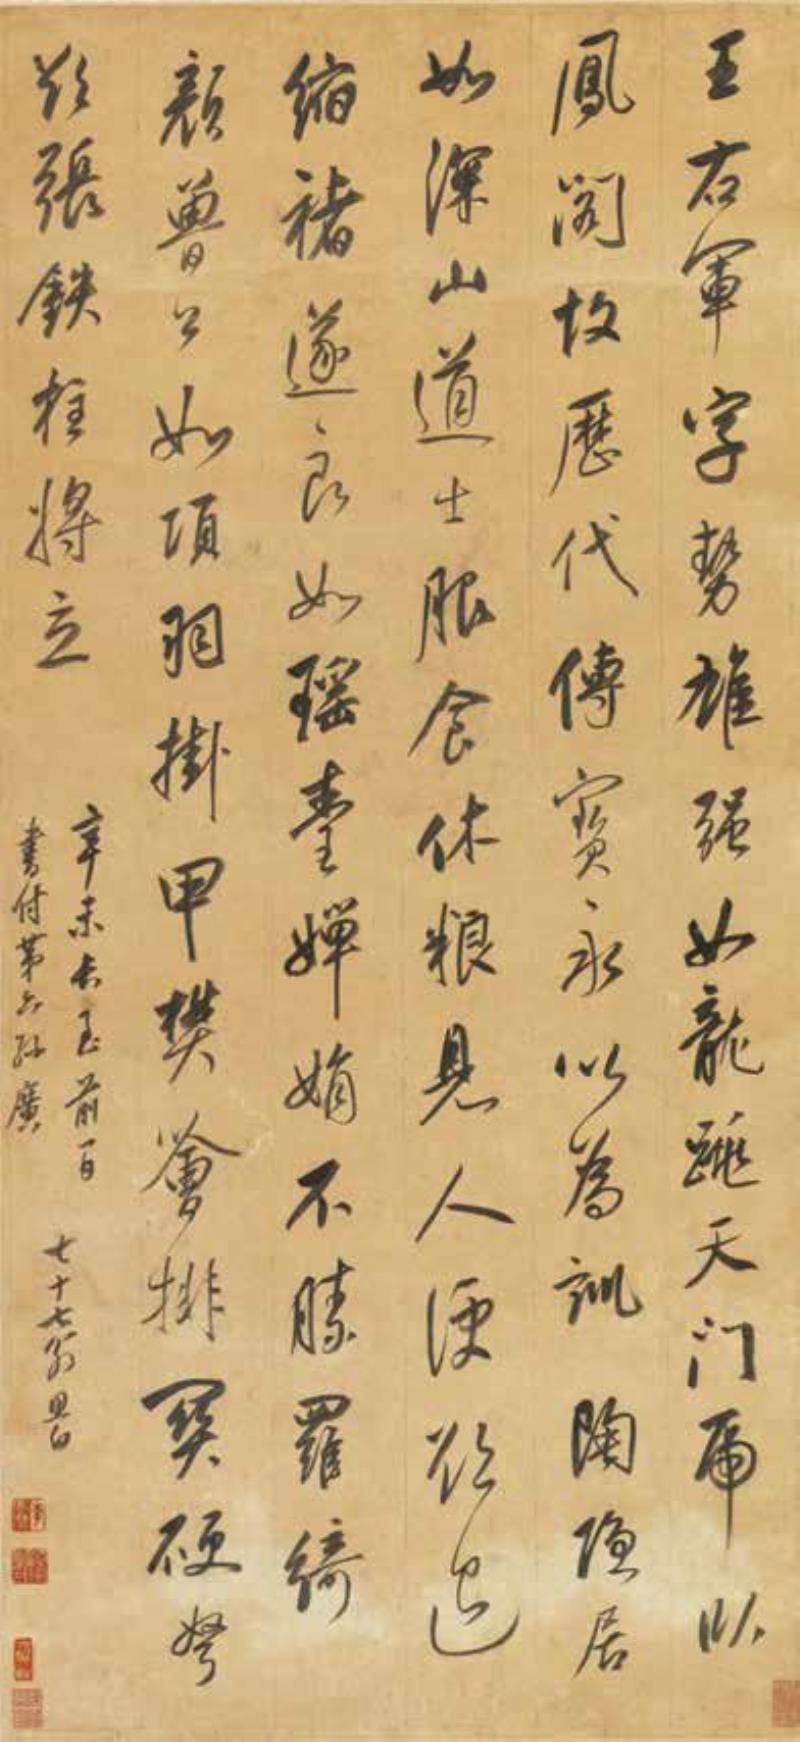 王右軍字勢雄强如龍跳天门虎臥
鳳閣故歷代傳寶永以為訓陶隱居
如深山道士服食休粮見人便欲退
縮褚遂良如瑶臺嬋娟不勝羅綺
顏魯公如項羽掛甲樊噲排突硬弩
欲張鉄柱將立
辛未長至前一日
書付第六孫廣
七十七翁思白